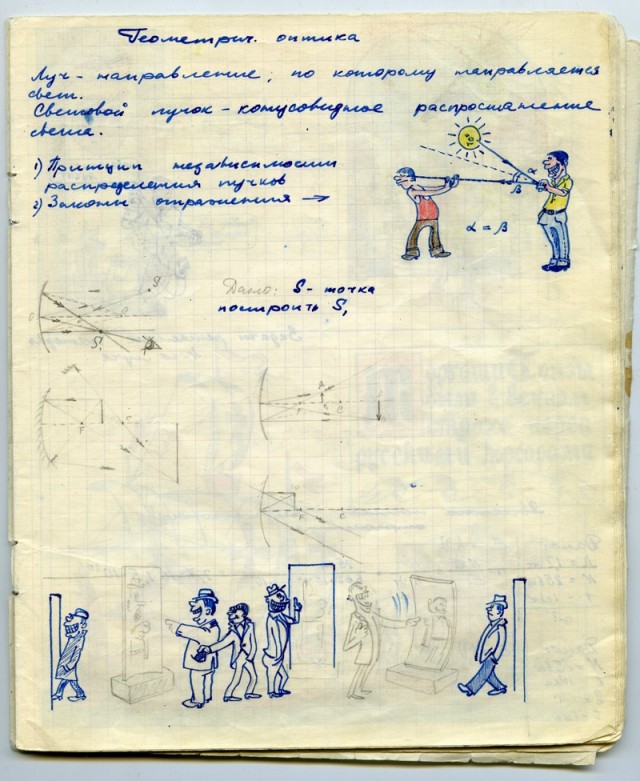 Геометрич. оптика
Луч - направление, по которому направляется
свет.
Световой пучок - конусовидное распространение
света.
1) Принцип независимости
распределения пучков
2) Законы отражения →
α
β
α = β
Дано: S - точка
построить S₁
S
S₁
F
F
F